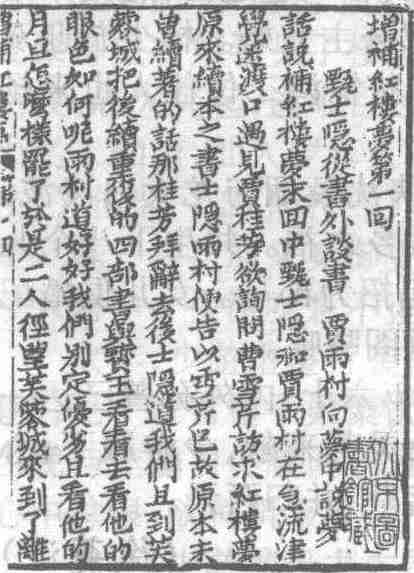 增補紅樓夢第一回
甄士隱從書外談書　賈雨村向夢中說夢
話說補紅樓夢末回中甄士隱和賈雨村在急流津
覺迷渡口遇見賈桂芳欲詢問曹雪芹訪求紅樓夢
原來續本之書士隱雨村便告以雪芹已故原本未
曾續著的話那桂芳拜辭去後士隱道我們且到芙
蓉城把後續重復的四部書與警玉看看去看他的
眼色如何呢雨村道好好我們別定優劣且看他的
月旦怎麼樣罷了於是二人徑望芙蓉城來到了離